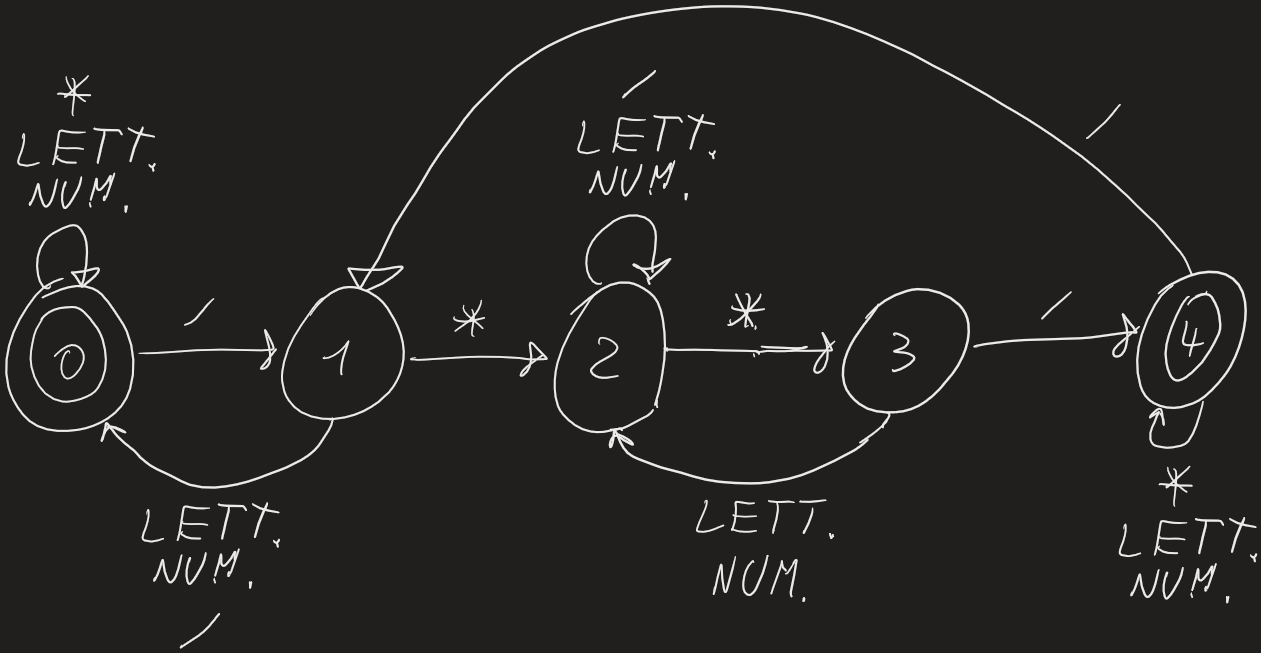 *
LETT.
NUM.
/
LETT.
NUM.
/
0
/
1
*
2
*
3
/
4
LETT.
NUM.
/
LETT.
NUM.
*
LETT.
NUM.